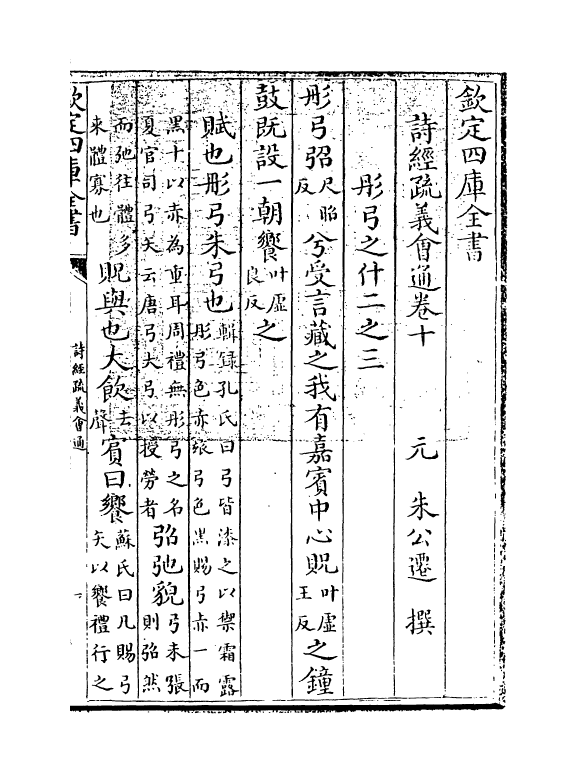 欽定四庫全書
詩經疏義會通卷十 元 朱公遷 撰
彤弓之什二之三
彤弓弨尺昭反兮受言藏之我有嘉賓中心貺叶虛王反之鐘
鼓既設一朝饗叶虛良反之
賦也彤弓朱弓也輯録孔氏曰弓皆漆之以禦霜露彤弓色赤玈弓色黑賜弓赤一而
黑十以赤為重耳周禮無彤弓之名夏官司弓矢云唐弓大弓以授勞者弨弛貌弓未張則弨然
而弛往體多來體寡也貺與也大飲去聲賓曰饗蘇氏曰凡賜弓矢以饗禮行之
欽定四庫全書
詩經疏義會通
一